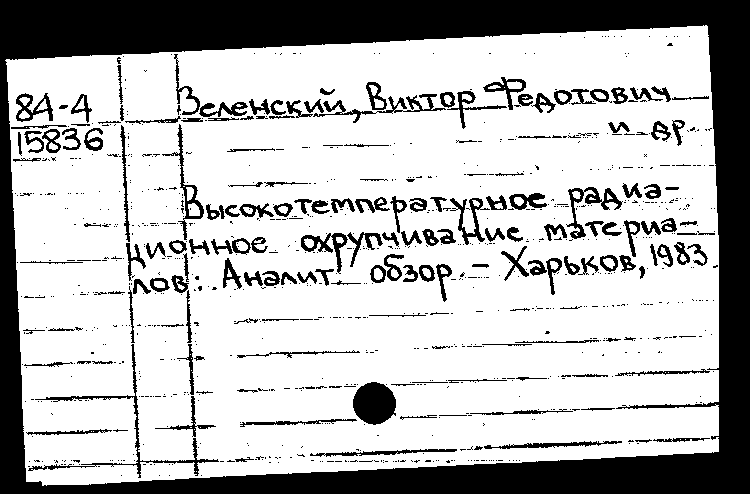 84-4
15836
Зеленский, Виктор Федотович
и др.
Высокотемпературное радиа-
ционное охрупчивание материа-
лов: Аналит. обзор. - Харьков, 1983